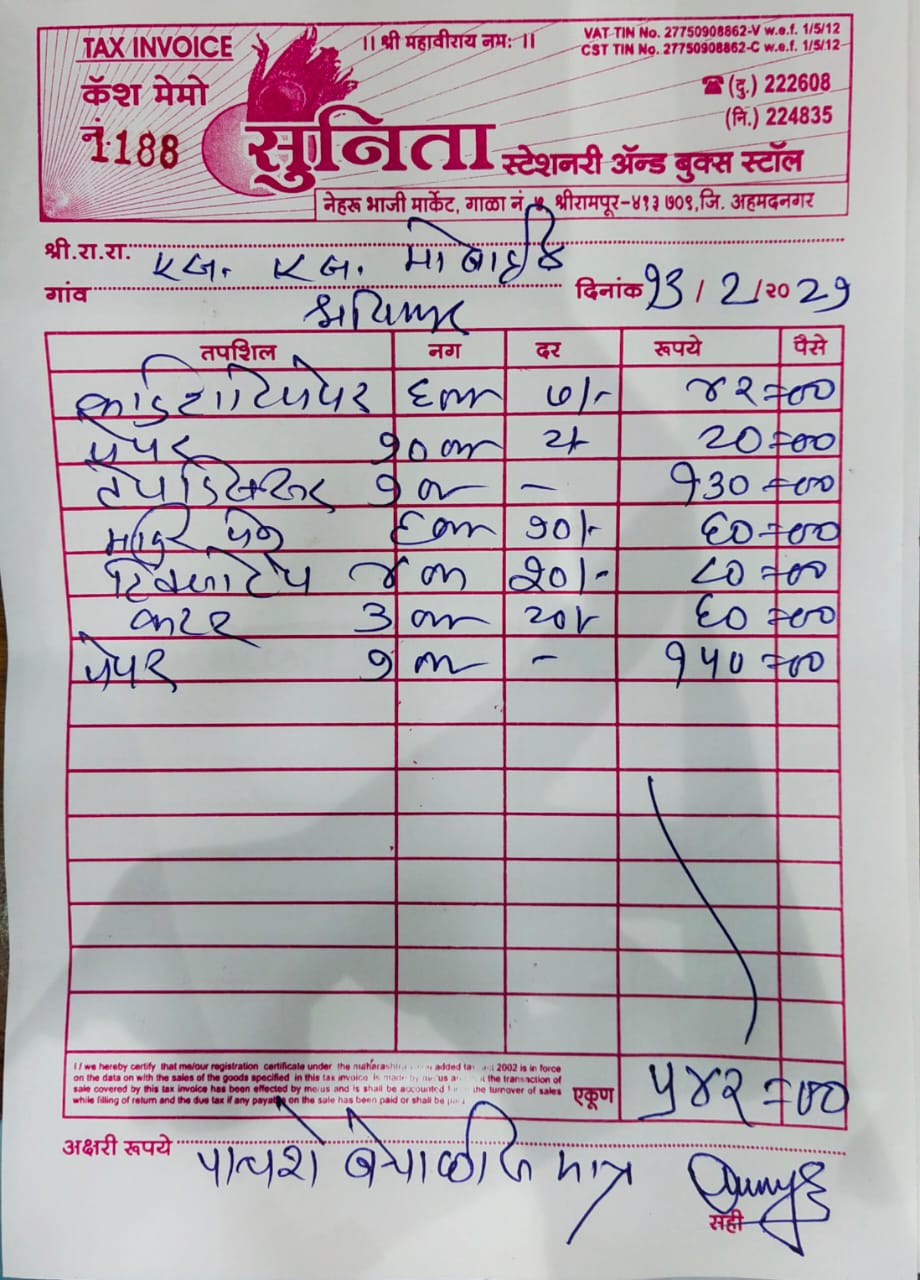 TAX INVOICE
।। श्री महावीराय नमः ।।
VAT TIN No. 27750908862-V w.e.f. 1/5/12
CST TIN No. 27750908862-C w.e.f. 1/5/12
कॅश मेमो
नं. 1188
☎ (दु.) 222608
(नि.) 224835
सुनिता स्टेशनरी ॲन्ड बुक्स स्टॉल
नेहरू भाजी मार्केट, गाळा नं. ५, श्रीरामपूर-४१३ ७०९, जि. अहमदनगर
श्री.रा.रा. एस. एस. मोबाईल
गांव
दिनांक १३ / 2 / २० 2१
तपशिल नग दर रूपये पैसे
६ नग ७/- ४२=००
पेपर १० नग 2/- 20=००
१ नग - १३०=००
६ नग १०/- ६०=००
४ नग २०/- ८०=००
कटर ३ नग २०/- ६०=००
पेपर १ नग - १५०=००
I / we hereby certify that me/our registration certificate under the maharashtra added tax act 2002 is in force
on the data on with the sales of the goods specified in this tax invoice is made by me us and the transaction of
sale covered by this tax invoice has been effected by me/us and is shall be accounted the turnover of sales
while filling of return and the due tax if any payable on the sale has been paid or shall be paid
एकूण ५४२=००
अक्षरी रूपये पाचशे बेचाळीस मात्र
सही